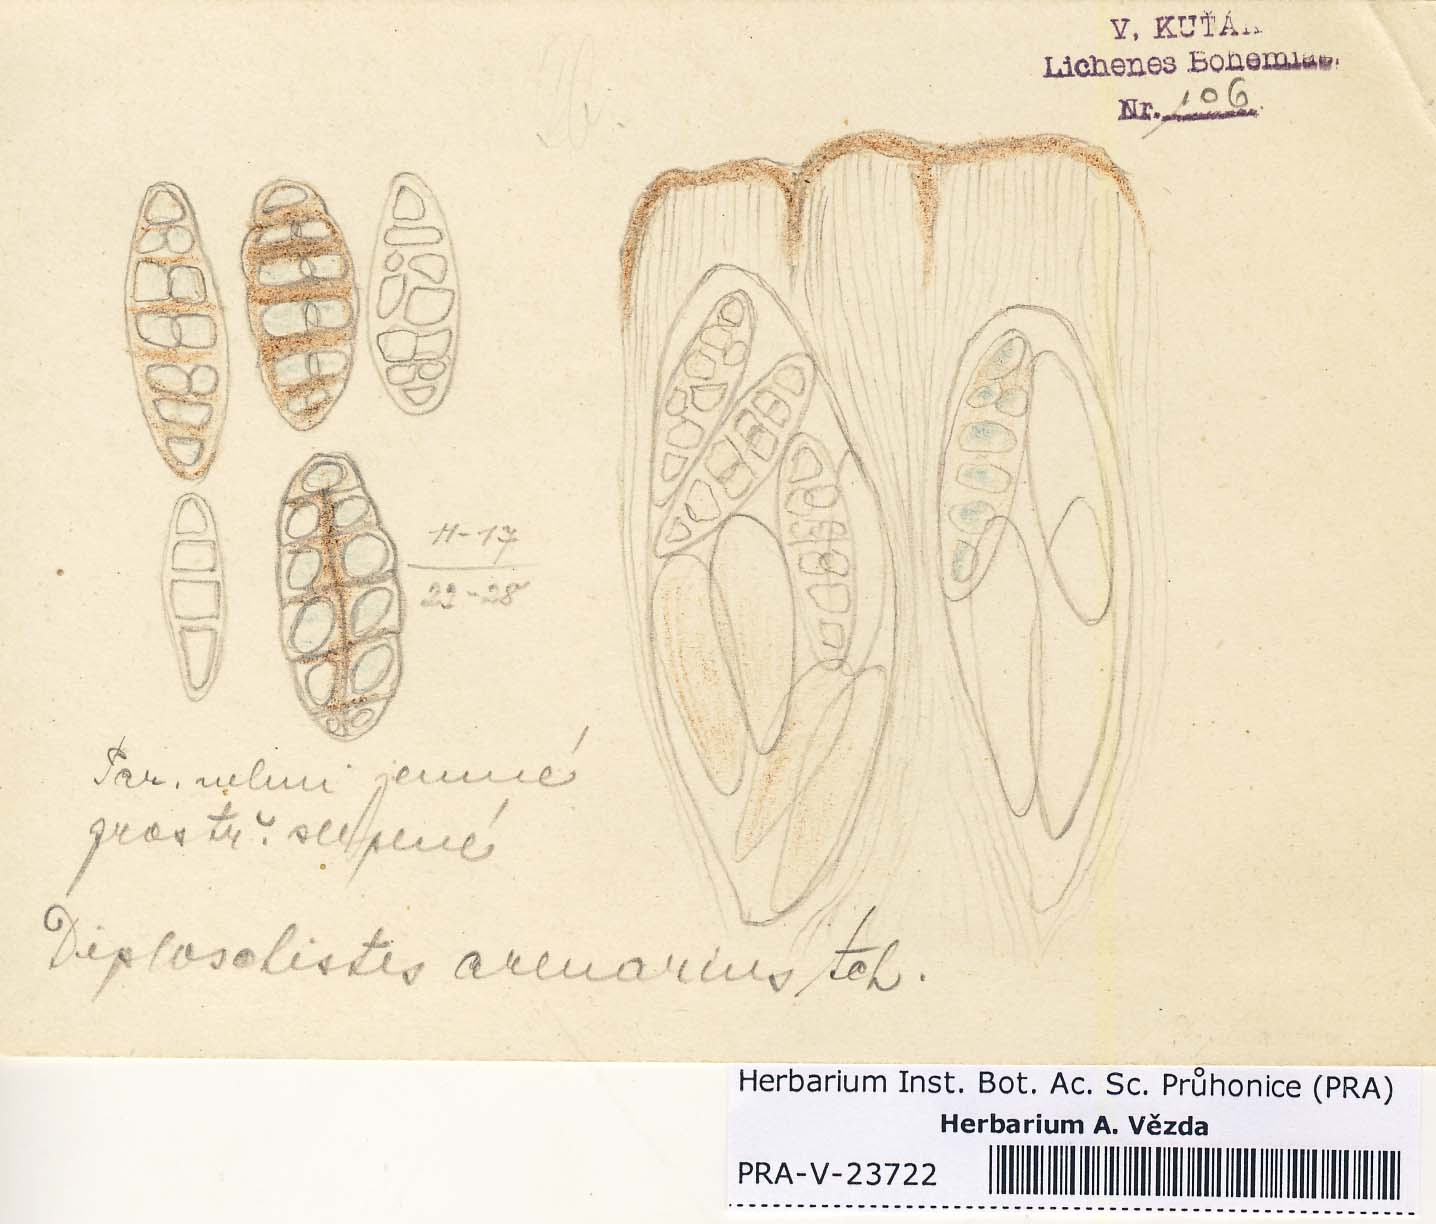 V. KUŤÁK
Lichenes Bohemiae.
Nr. 106
11-17
23-28
Par. velmi jemné
prostř. slepené
Diploschistes arenarius Tch.
Herbarium Inst. Bot. Ac. Sc. Průhonice (PRA)
Herbarium A. Vězda
PRA-V-23722